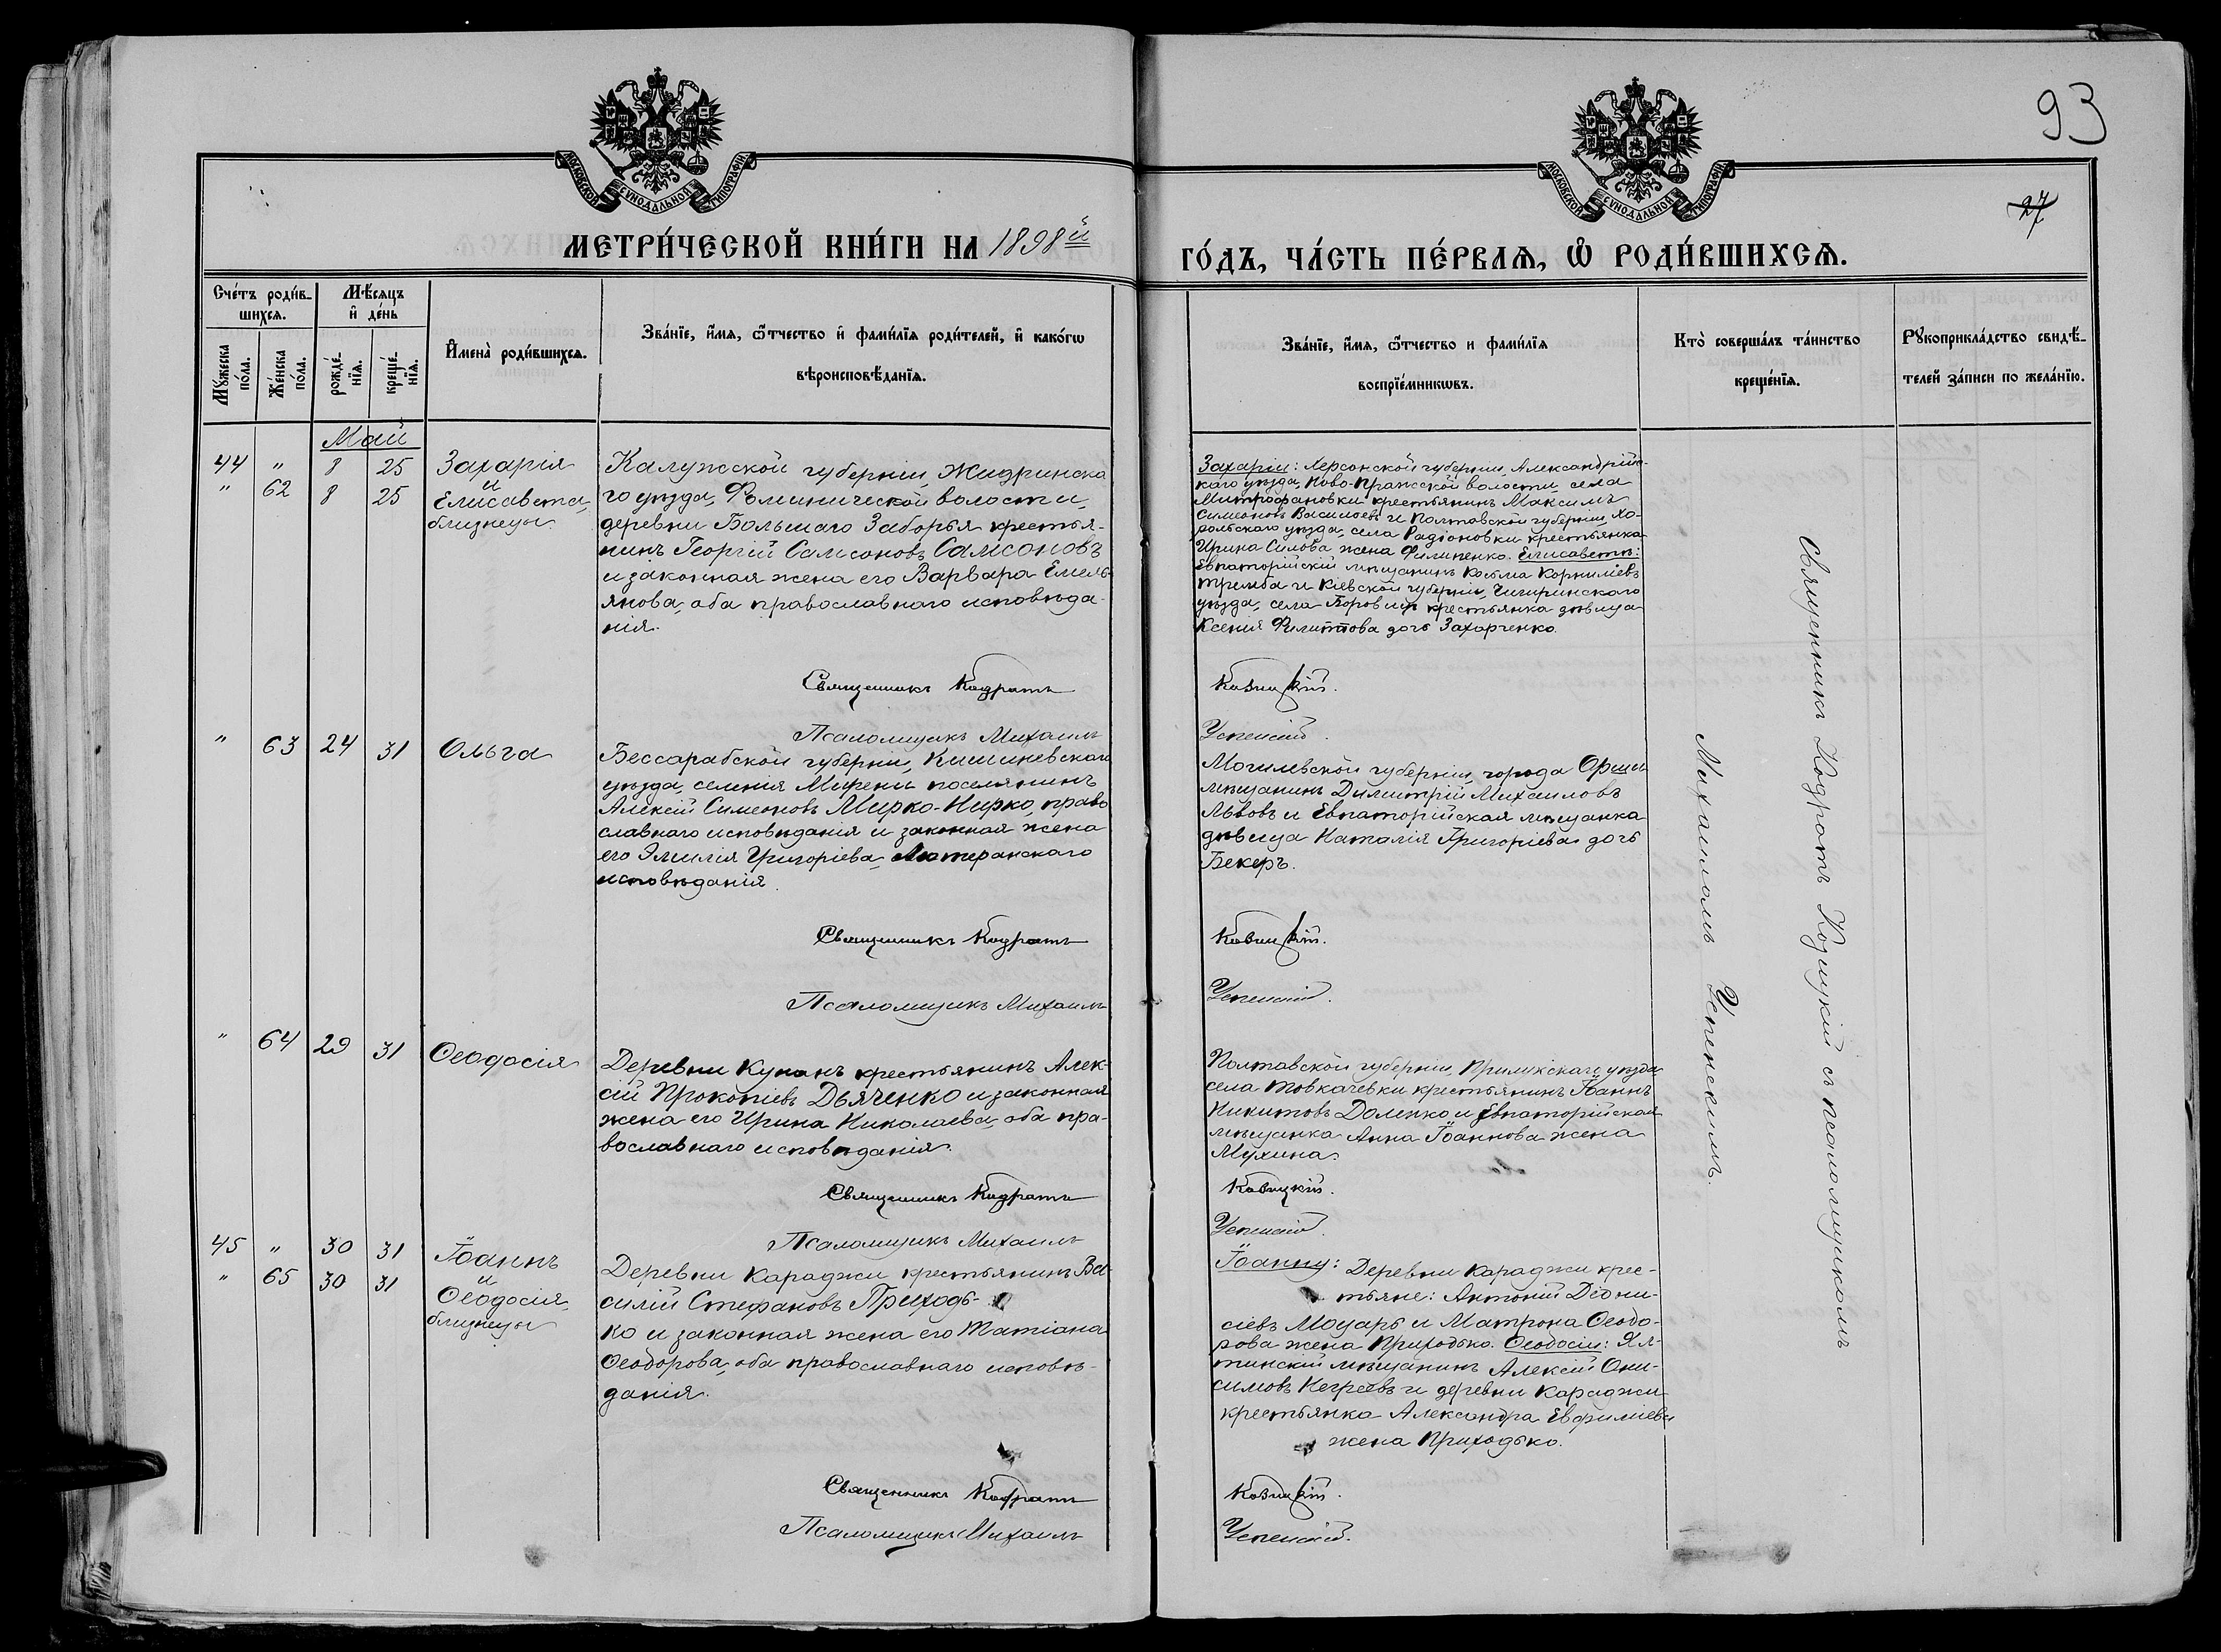 93
27
МОСКОВСКОЙ СѴНОДАЛЬНОЙ ТИПОГРАФІИ.
МОСКОВСКОЙ СѴНОДАЛЬНОЙ ТИПОГРАФІИ.
МЕТРИ́ЧЕСКОЙ КНИ́ГИ НА 1898й
ГО́ДЪ, ЧА́СТЬ ПЕ́РВАѦ, Ѡ҆ РОДИ́ВШИХСѦ.
Сче́тъ роди́в-
шихсѧ.
Мѣ́сѧцъ
и҆ де́нь
Мꙋ́жеска
по́ла.
Же́нска
по́ла.
рожде́-
нїѧ.
креще́-
нїѧ.
И҆мена̀ роди́вшихсѧ.
Зва́нїе, и҆́мѧ, ѻ҆́тчество и҆ фами́лїѧ роди́телей, и҆ како́гѡ
вѣроисповѣ́данїѧ.
Зва́нїе, и҆́мѧ, ѻ҆́тчество и фами́лїѧ
воспрїе́мникѡвъ.
Кто̀ соверша́лъ та́инство
креще́нїѧ.
Рꙋкоприкла́дство свидѣ́-
телей за́писи по жела́нїю.
Май
44 " 8 25 Захарія
" 62 8 25 и
Елисавета,
близнецы
Калужской губерніи, Жиздринска
го уѣзда, Фоминической волости,
деревни Большаго Заборья крестья-
нинъ Георгій Самсоновъ Самсоновъ
и законная жена его Варвара Емель-
янова, оба православнаго исповѣда-
нія.
Священникъ Кодратъ
Псаломщикъ Михаилъ
Захаріи: Херсонской губерніи, Александрійс-
каго уѣзда, Ново-Пражской волости, села
Митрофановки крестьянинъ Максимъ
Симеоновъ Васильевъ и Полтавской губерніи, Хо-
рольскаго уѣзда, села Радіоновки крестьянка
Ирина Силова жена Филипенко. Елисаветы:
Евпаторійскій мѣщанинъ Косьма Корниліевъ
Тремба и Кіевской губерніи, Чигиринскаго
уѣзда, села Боровицы крестьянка дѣвица
Ксенія Филиппова дочь Захарченко.
Козицкій.
Успенскій.
" 63 24 31 Ольга
Бессарабской губерніи, Кишиневскаго
уѣзда, селенія Мирены поселянинъ
Алексій Симеоновъ Мирко-Нирко, право
славнаго исповѣданія и законная жена
его Эмилія Григоріева, Лютеранскаго
исповѣданія.
Священникъ Кодратъ
Псаломщикъ Михаилъ
Могилевской губерніи, города Орши
мѣщанинъ Димитрій Михаиловъ
Львовъ и Евпаторійская мѣщанка
дѣвица Наталія Григоріева дочь
Бекеръ.
Козицкій.
Успенскій.
" 64 29 31 Ѳеодосія
Деревни Кунанъ крестьянинъ Алек-
сій Прокопіевъ Дьяченко и законная
жена его Ирина Николаева, оба пра-
вославнаго исповѣданія.
Священникъ Кодратъ
Псаломщикъ Михаилъ
Полтавской губерніи, Прилукскаго уѣзда
села Товкачевки крестьянинъ Іоаннъ
Никитовъ Доленко и Евпаторійская
мѣщанка Анна Іоаннова жена
Мухина.
Козицкій.
Успенскій.
45 " 30 31 Іоаннъ
" 65 30 31 и
Ѳеодосія,
близнецы
Деревни Караджи крестьянинъ Ва
силій Стефановъ Приходь-
ко и законная жена его Татіана
Ѳеодорова, оба православнаго исповѣ-
данія.
Священникъ Кодратъ
Псаломщикъ Михаилъ
Іоанну: Деревни Караджи крес-
тьяне: Антоній Діони-
сіевъ Моцарь и Матрона Ѳеодо-
рова жена Приходько. Ѳеодосіи: Ял-
тинскій мѣщанинъ Алексій Они-
симовъ Негреевъ и деревни Караджи
крестьянка Александра Евфиміева
жена Приходько.
Козицкій.
Успенскій.
Священникъ Кодратъ Козицкій съ псаломщикомъ
Михаиломъ Успенскимъ.